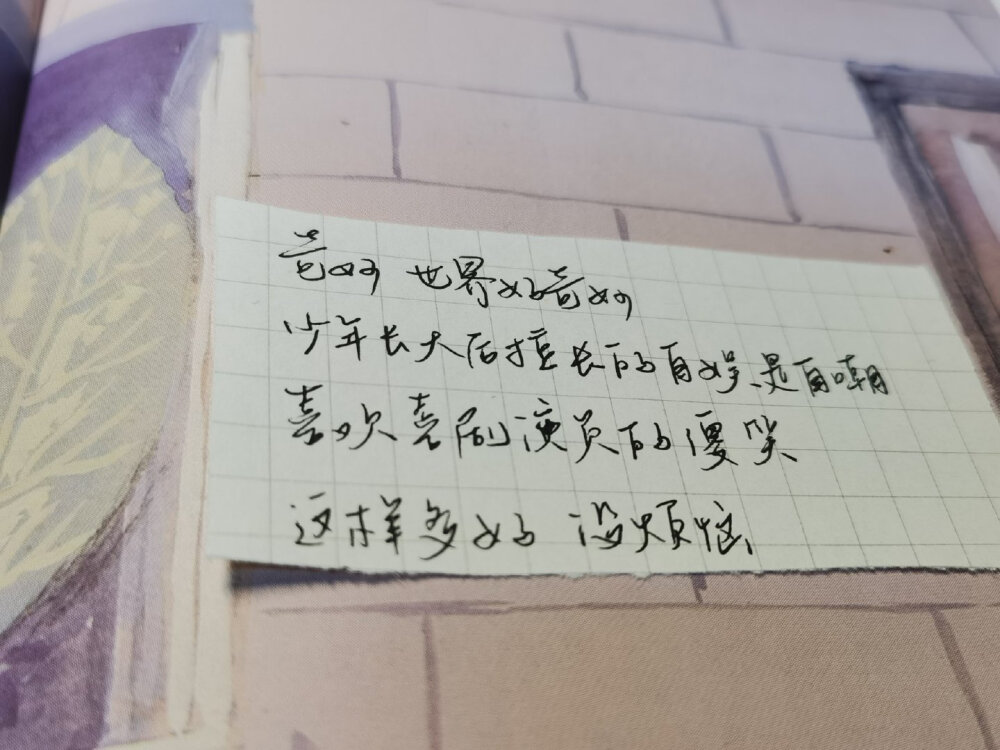 奇妙 世界好奇妙
少年长大后擅长的自娱是自嘲
喜欢喜剧演员的傻笑
这样多好 没烦恼